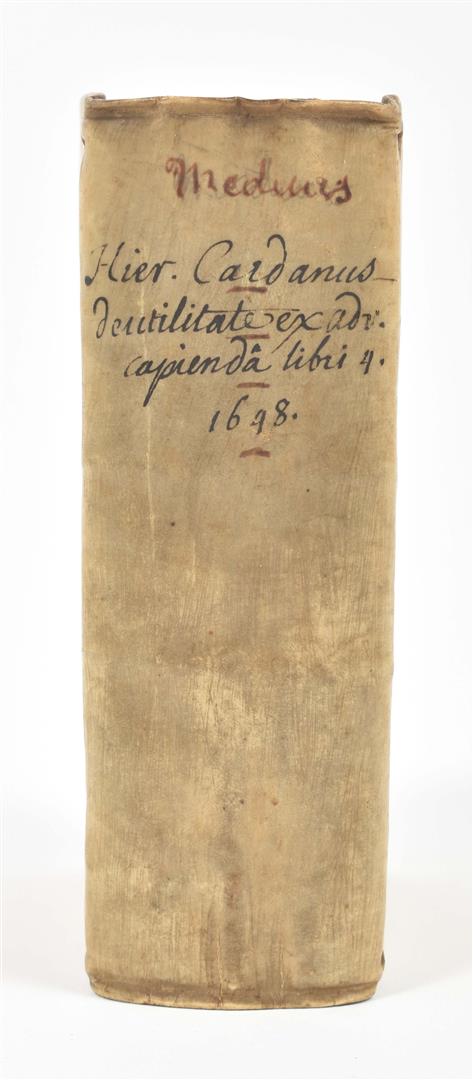 Medicus
Hier. Cardanus
de utilitate ex adv.
capiendâ libri 4.
1648.